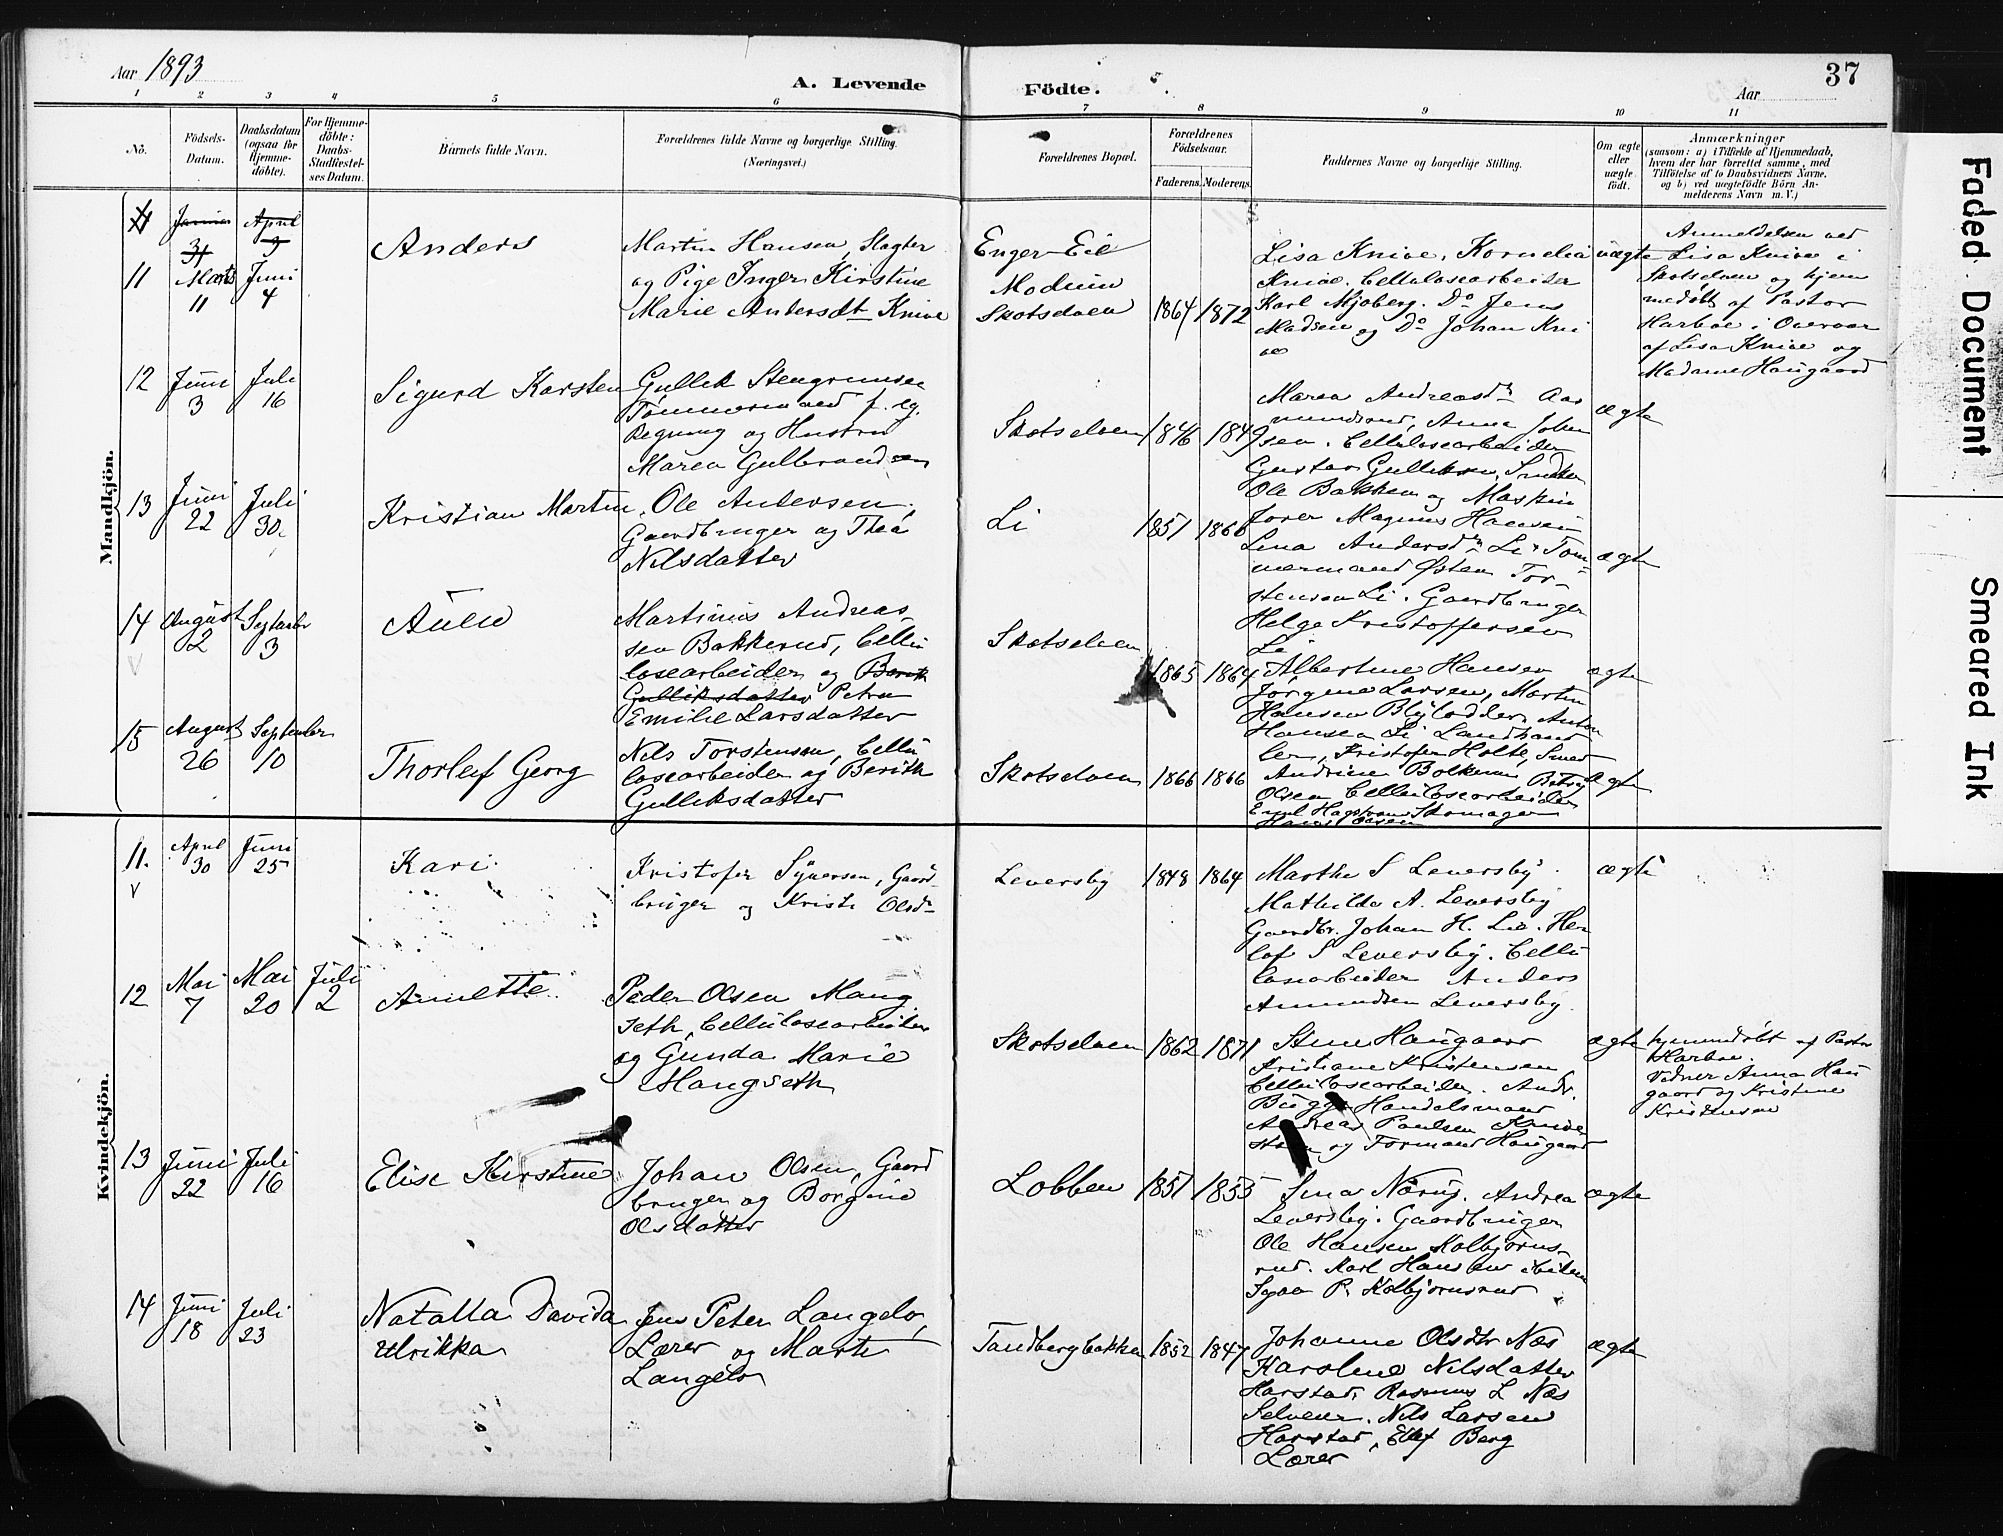 Aar 1893
A. Levende Fødte.
37
Aar
1 2 3 4 5 6 7 8 9 10 11
No.
Fødsels-Datum.
Daabsdatum (ogsaa for Hjemme-døbte).
For Hjemme-døbte: Daabs-Stadfestel-ses Datum.
Barnets fulde Navn.
Forældrenes fulde Navne og borgerlige Stilling. (Næringsvei.)
Forældrenes Bopæl.
Forældrenes Fødselsaar.
Faderens. Moderens.
Faddernes Navne og borgerlige Stilling.
Om ægte eller uægte født.
Anmærkninger
(saasom: a) i Tilfælde af Hjemmedaab, hvem der har forrettet samme, med Tilføielse af to Daabsvidners Navne, og b) ved uægtefødte Børn An-melderens Navn m. V.)
Mandkjön.
11 Marts 11 Juni 4
Anders
Martin Hansen, Slagter
og Pige Inger Kirstine
Marie Andersdt Knive
Enger Eie
Modum
Skotselven
1864 1872
Lisa Knive, Kornelia
Knive. Cellulosearbeider
Karl Mjøberg. Do Jens
Madsen og Do Johan Kni
ve
uægte
Anmeldelsen ved
Lisa Knive i
Skotselven og hjem
medøbt af Pastor
Harboe i Overvær
af Lisa Knive og
Madame Haugaard
12 Juni 3 Juli 16
Sigurd Karsten
Gullik Stengrimsen
Tømmermand f. eg.
Regning og Hustru
Maren Gulbrandsen
Skotselven
1846 1849
Maren Andreasdtr Aas
mundrud, Anna Johan
sen. Cellulosearbeider
Gustav Gulliksen, Snedker
Ole Bakken og Maskin
fører Magnus Hansen
ægte
13 Juni 22 Juli 30.
Kristian Martin
Ole Andersen,
Gaardbruger og Thea
Nilsdatter
Li
1851 1866
Lina Andersdtr Li. Tøm
mermand Østen Tor-
stensen Li. Gaardbruger
Helge Kristoffersen
Li
ægte
14 August 2 Septembr 3
Martinius Andreas
sen Bakkerud, Cellu
losearbeider og Berith
Gulliksdatter Petra
Emilie Larsdatter
Skotselven
1865 1864
Albertine Hansen
Jørgine Larsen, Martin
Hansen Blylodder, Anton
Hansen Li Landhand
ler, Kristofer Holte, Smed
ægte
15 August 26 September 10
Thorleif Georg
Nils Torstensen, Cellu
losearbeider og Berith
Gulliksdatter
Skotselven
1866 1866
Andrine Bolkesen Betsy
Olsen Cellulosearbeider
Emil Hagstrøm Skomager
Hans Olsen
ægte
Kvindekjön.
11. April 30 Juni 25
Kari
Kristofer Syversen, Gaard-
bruger og Kristi Olsdr
Leversby
1848 1864
Marthe S Leversby
Mathilde A. Leversby
Gaardbr. Johan H. Lie. Her
lof S Leversby. Cellu
losearbeider Anders
Amundsen Leversby.
ægte
12 Mai 7 Mai 20 Juli 2
Anette
Peder Olsen Mang
seth, Cellulosearbeider
og Gunda Marie
Mangseth
Skotselven
1862 1871
Stine Haugaard
Kristiane Kristensen
Cellulosearbeider. Andr.
Bugge Handelsmand
Andreas Paulsen Knive
og Formand Haugaard
ægte
hjemmedøbt af Pastor
Harboe.
Vidner Anna Hau
gaard og Kristine
Kristensen
13 Juni 22 Juli 16
Elise Kirstine
Johan Olsen, Gaard
bruger og Borgine
Olsdatter
Lobben
1851 1855
Lina Nørup. Andrea
Leversby. Gaardbruger
Ole Hansen Kolbjørns-
rud. Karl Hansen ibidem
P. Kolbjørnsrud
ægte
14 Juni 18 Juli 23
Natalia Davida
Ulrikka
Jens Peter Langelo,
Lærer og Marte
Langelo
Tandbergbakken
1852 1847
Johanne Olsdtr Næs
Karoline Nilsdatter
Harstad, Rasmus L Næs
Selveier. Nils Larsen
Harstad, Ellef Berg
Lærer
ægte
Faded Document Smeared Ink